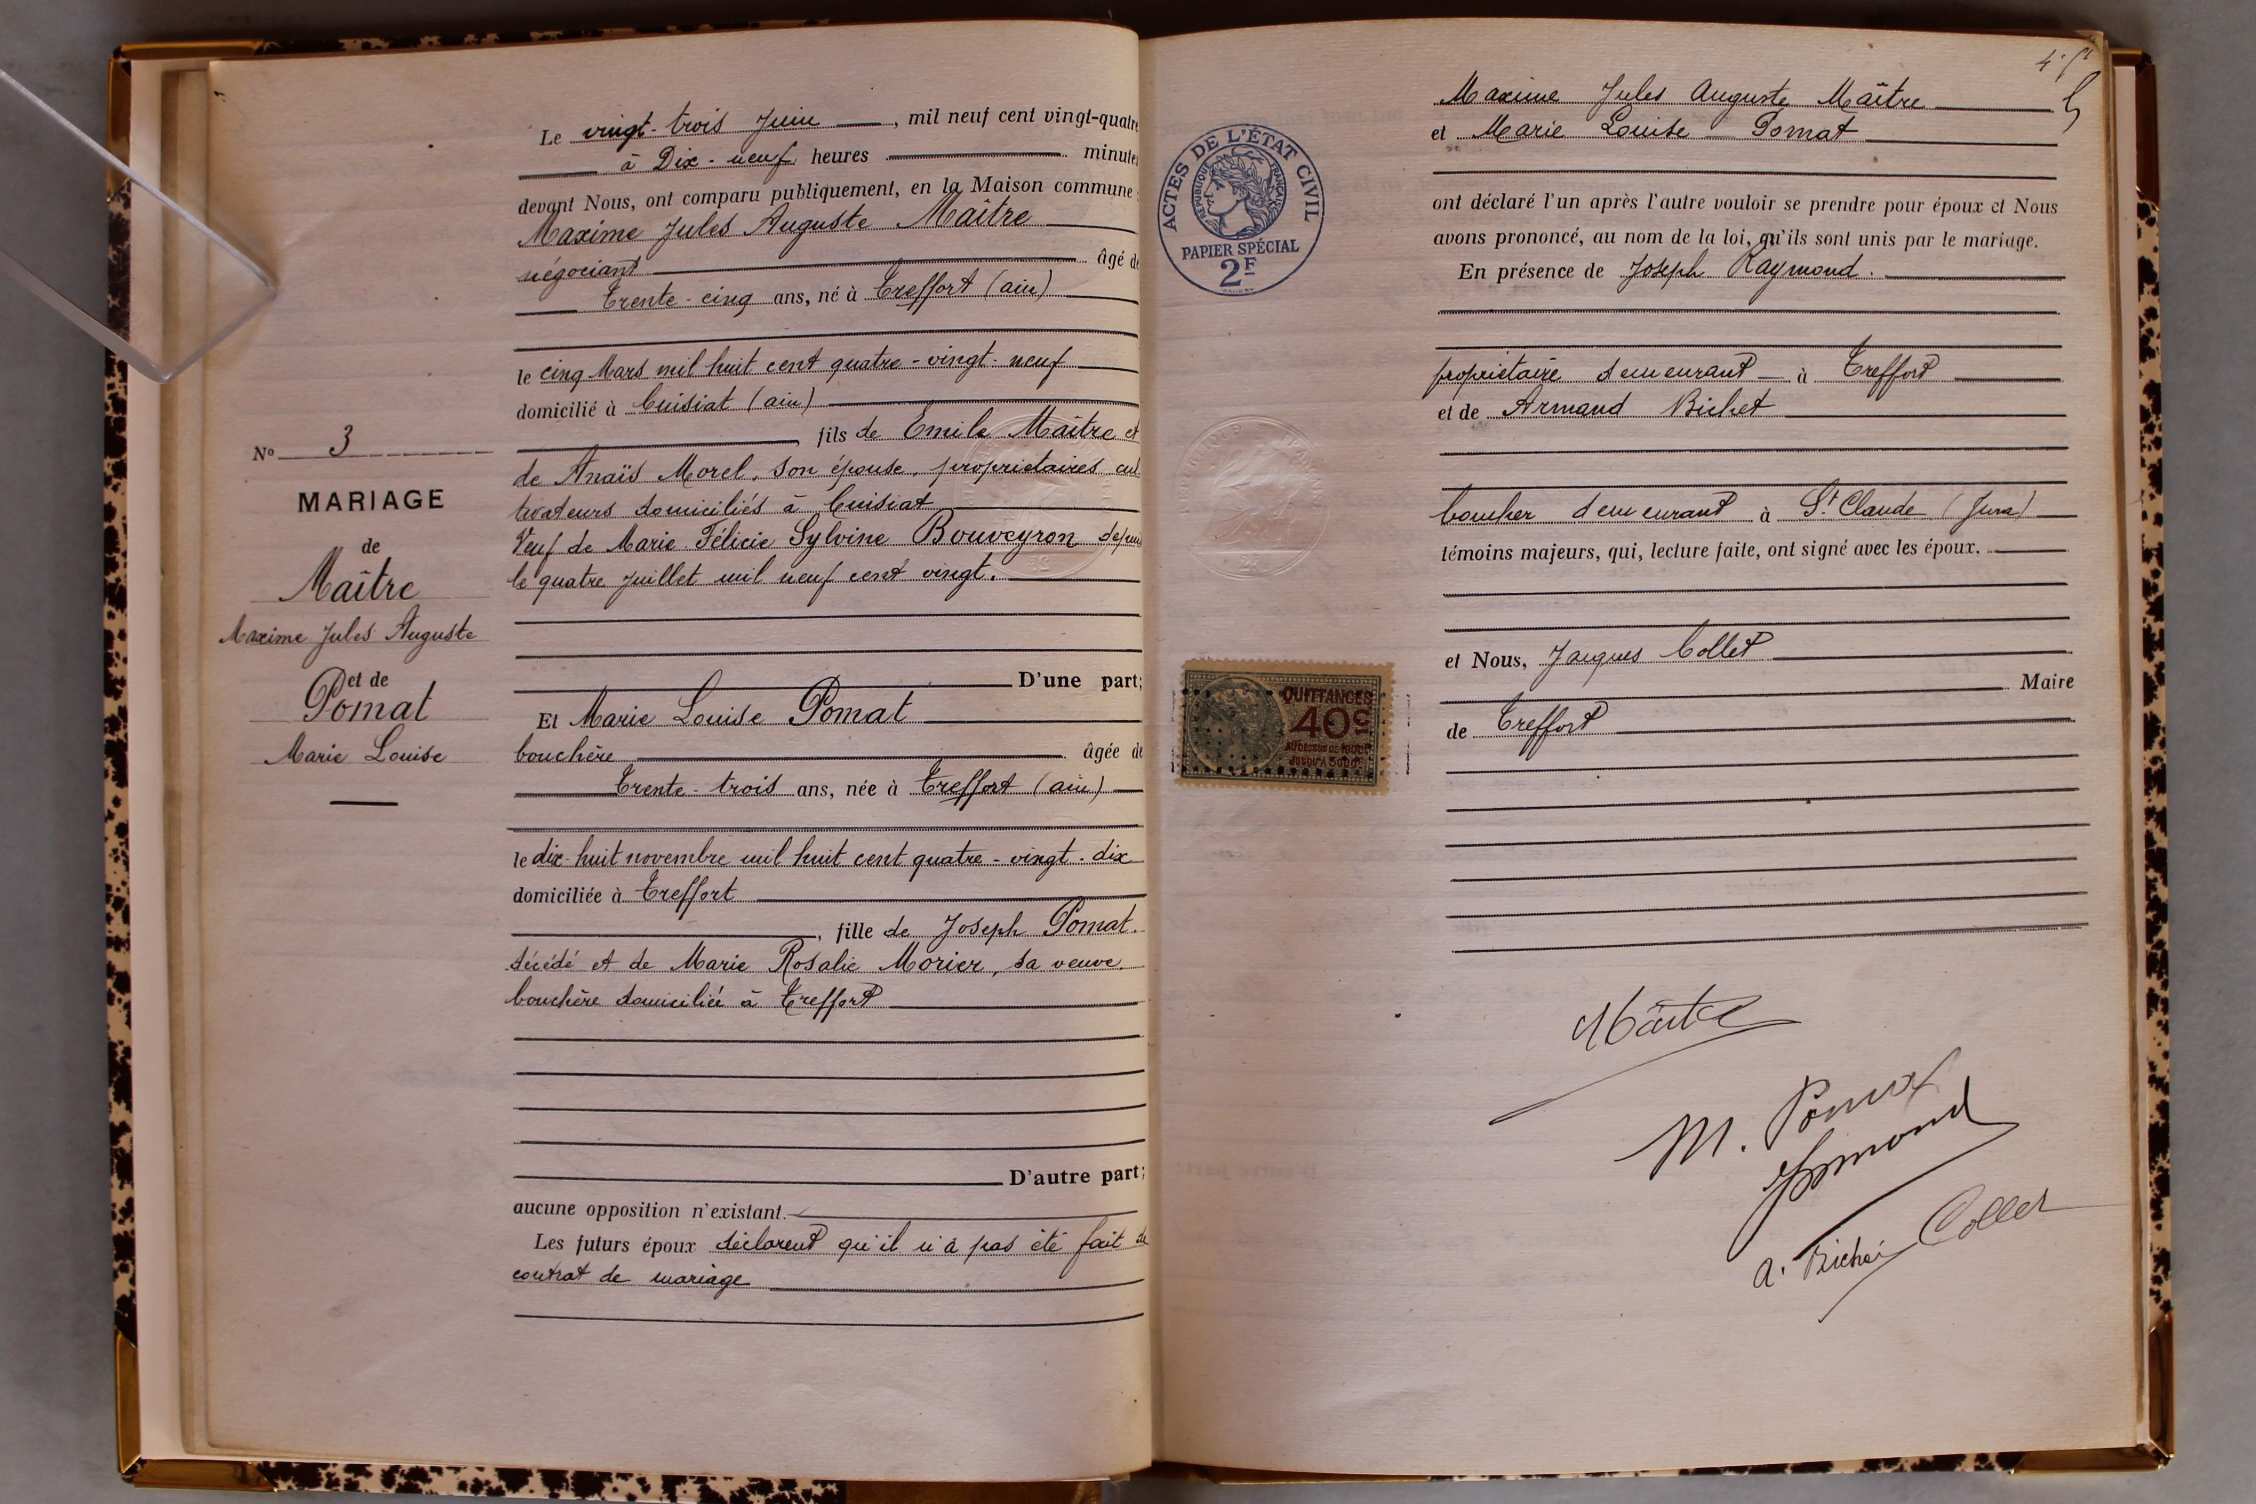 Le vingt-trois Juin, mil neuf cent vingt-quatre
à Dix-neuf heures minutes
devant Nous, ont comparu publiquement, en la Maison commune :
Maxime Jules Auguste Maître
négociant âgé de
Trente-cinq ans, né à Treffort (ain)
le cinq Mars mil huit cent quatre-vingt-neuf
domicilié à Cuisiat (ain)
fils de Emile Maître et
de Anaïs Morel, son épouse, propriétaires cul
tivateurs domiciliés à Cuisiat
Veuf de Marie Félicie Sylvine Bouveyron depuis
le quatre juillet mil neuf cent vingt.
D'une part;
Et Marie Louise Pomat
bouchère âgée de
Trente-trois ans, née à Treffort (ain)
le dix-huit novembre mil huit cent quatre-vingt-dix
domiciliée à Treffort
, fille de Joseph Pomat.
décédé et de Marie Rosalie Morier, sa veuve
bouchère domiciliée à Treffort
D'autre part;
aucune opposition n'existant.
Les futurs époux déclarent qu'il n'a pas été fait de
contrat de mariage
No 3
MARIAGE
de
Maître
Maxime Jules Auguste
et de
Pomat
Marie Louise
ACTES DE L'ÉTAT CIVIL
RÉPUBLIQUE FRANÇAISE
PAPIER SPÉCIAL
2F
QUITTANCES
40c
AU DESSUS DE 1000F
JUSQU'A 3000F
Maxime Jules Auguste Maître
et Marie Louise Pomat
ont déclaré l'un après l'autre vouloir se prendre pour époux et Nous
avons prononcé, au nom de la loi, qu'ils sont unis par le mariage.
En présence de Joseph Raymond.
propriétaire demeurant à Treffort
et de Armand Bichet
boucher demeurant à St Claude (Jura)
témoins majeurs, qui, lecture faite, ont signé avec les époux.
et Nous, Jacques Collet
Maire
de Treffort
Maître
M. Pomat
A. Bichet
Collet